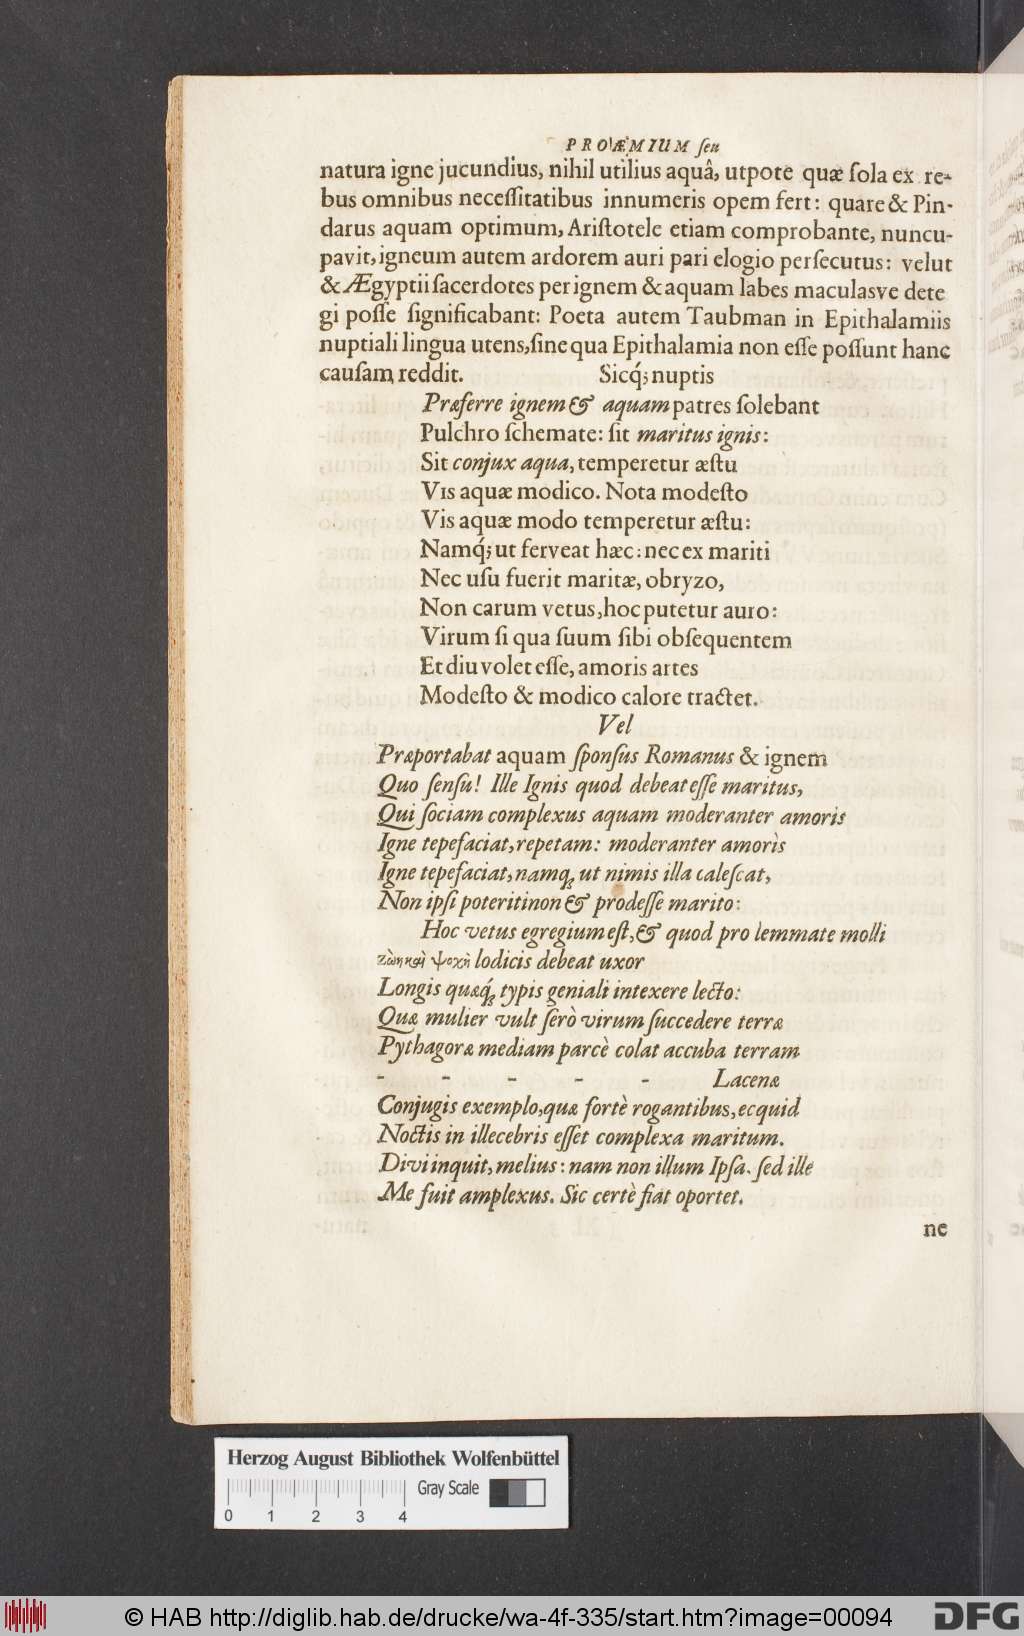 PROÆMIUM ſeu
natura igne jucundius, nihil utilius aquâ, utpote quæ ſola ex re-
bus omnibus neceſſitatibus innumeris opem fert: quare & Pin-
darus aquam optimum, Ariſtotele etiam comprobante, nuncu-
pavit, igneum autem ardorem auri pari elogio perſecutus: velut
& Ægyptii ſacerdotes per ignem & aquam labes maculasve dete
gi poſſe ſignificabant: Poeta autem Taubman in Epithalamiis
nuptiali lingua utens, ſine qua Epithalamia non eſſe poſſunt hanc
cauſam reddit. Sicq́; nuptis
Præferre ignem & aquam patres ſolebant
Pulchro ſchemate: ſit maritus ignis:
Sit conjux aqua, temperetur æſtu
Vis aquæ modico. Nota modeſto
Vis aquæ modo temperetur æſtu:
Namq́; ut ferveat hæc: nec ex mariti
Nec uſu fuerit maritæ, obryzo,
Non carum vetus, hoc putetur auro:
Virum ſi qua ſuum ſibi obſequentem
Et diu volet eſſe, amoris artes
Modeſto & modico calore tractet.
Vel
Præportabat aquam ſponſus Romanus & ignem
Quo ſenſu! Ille Ignis quod debeat eſſe maritus,
Qui ſociam complexus aquam moderanter amoris
Igne tepefaciat, repetam: moderanter amoris
Igne tepefaciat, namq; ut nimis illa caleſcat,
Non ipſi poterit inon & prodeſſe marito:
Hoc vetus egregium eſt, & quod pro lemmate molli
ζωὴ καὶ ψυχὴ lodicis debeat uxor
Longis quæq́; typis geniali intexere lecto:
Quæ mulier vult ſerò virum ſuccedere terræ
Pythagoræ mediam parcè colat accuba terram
- - - - - Lacenæ
Conjugis exemplo, quæ fortè rogantibus, ecquid
Noctis in illecebris eſſet complexa maritum.
Divi inquit, melius: nam non illum Ipſa. ſed ille
Me fuit amplexus. Sic certè fiat oportet.
ne
Herzog August Bibliothek Wolfenbüttel
Gray Scale
0 1 2 3 4
© HAB http://diglib.hab.de/drucke/wa-4f-335/start.htm?image=00094
DFG